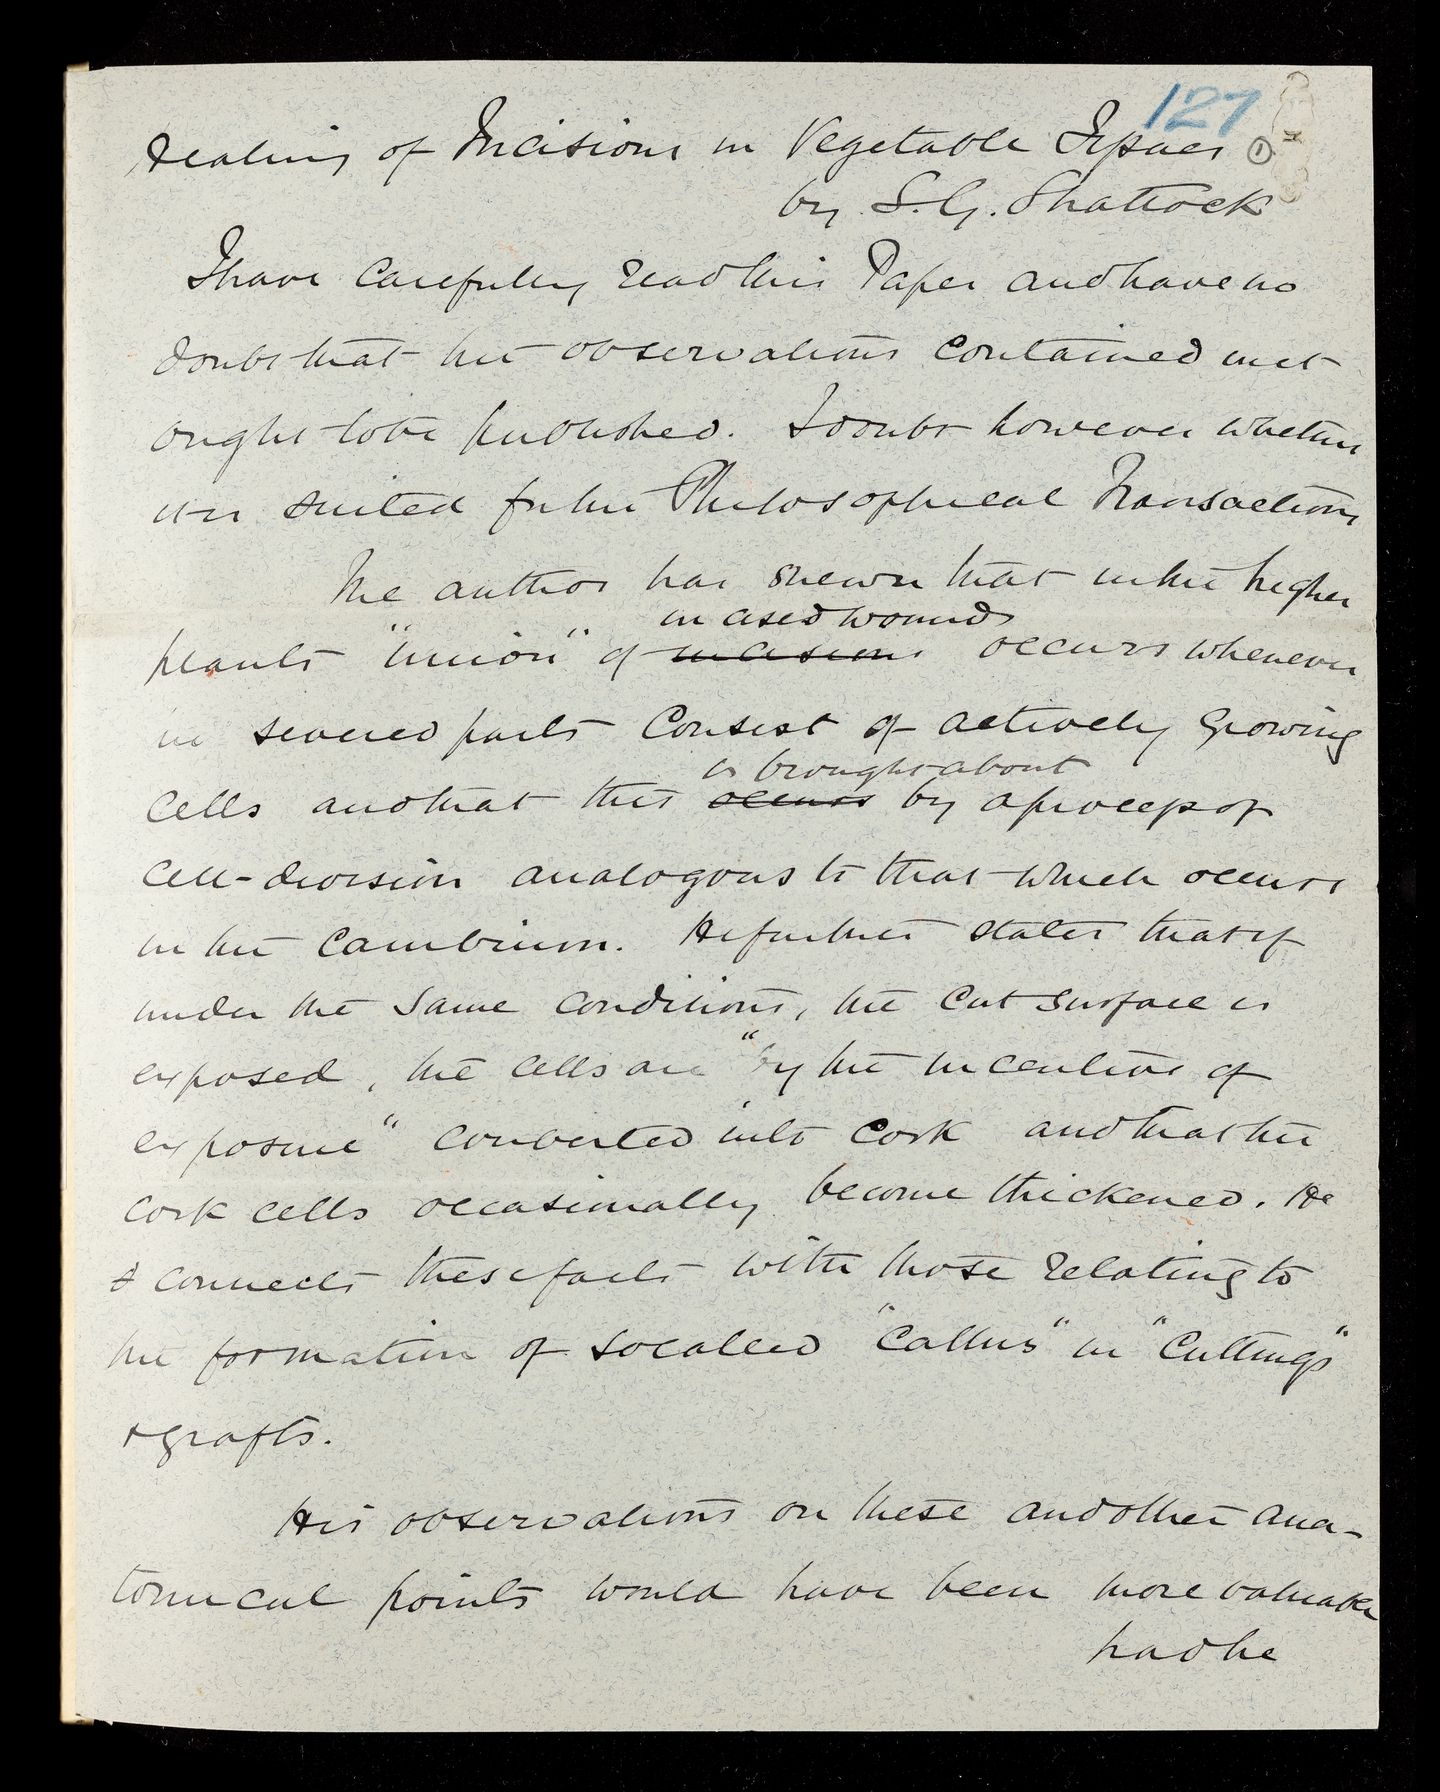 127
Healing of Incisions in Vegetable Tissues ①
by S. G. Shattock
I have carefully read this Paper and have no
doubt that the observations contained in it
ought to be published. I doubt however whether
it is suited for the Philosophical Transactions
The author has shewn that in the higher
incised wounds
plants "union" of incisions occurs whenever
the severed parts consist of actively growing
is brought about
cells and that this occurs by a process of
cell-division analogous to that which occurs
in the cambium. He further states that if
under the same conditions, the cut surface is
exposed, the cells are "by the incentive of
exposure" converted into cork and that the
cork cells occasionally become thickened. He
connects these facts with those relating to
the formation of so called "callus" in "cuttings"
& grafts.
His observations on these and other ana-
tomical points would have been more valuable
had he